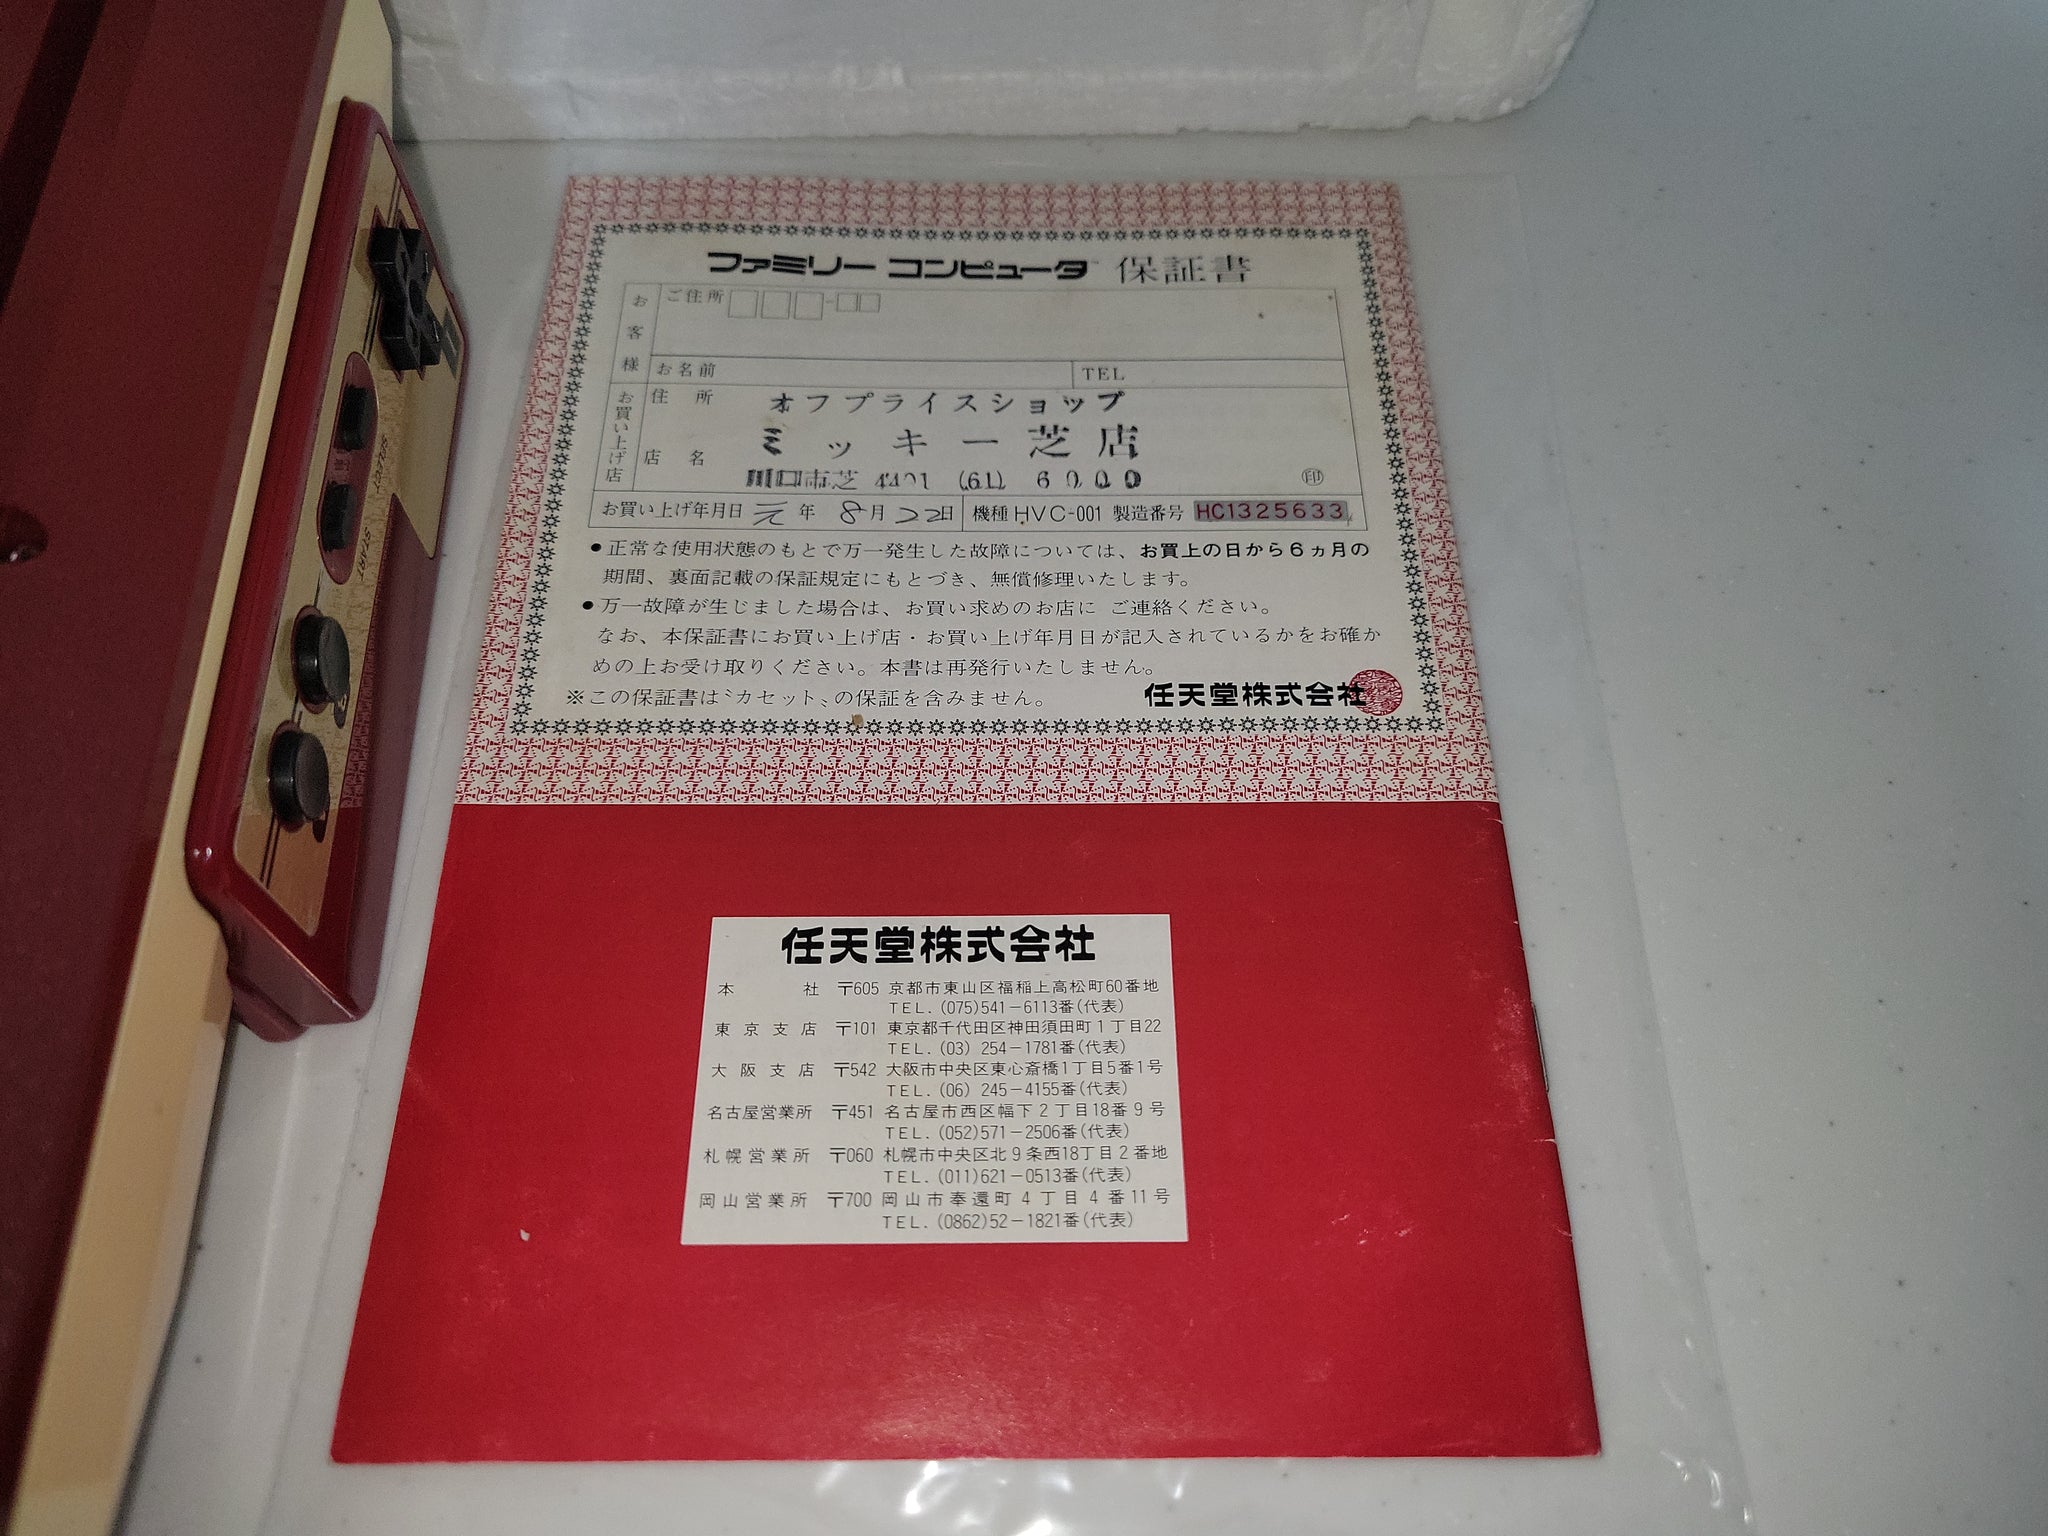 ファミリー コンピュータ 保証書
お客様
ご住所
お名前
TEL
お買い上げ店
住所
オフプライスショップ
店名
ミッキー芝店
川口市芝 4401 (61) 6000
印
お買い上げ年月日 元年 8月22日 機種HVC-001 製造番号 HC1325633
●正常な使用状態のもとで万一発生した故障については、お買上の日から6ヵ月の
期間、裏面記載の保証規定にもとづき、無償修理いたします。
●万一故障が生じました場合は、お買い求めのお店に ご連絡ください。
なお、本保証書にお買い上げ店・お買い上げ年月日が記入されているかをお確か
めの上お受け取りください。本書は再発行いたしません。
※この保証書は〝カセット〟の保証を含みません。
任天堂株式会社
任天堂株式会社
本社 〒605 京都市東山区福稲上高松町60番地
TEL. (075)541-6113番(代表)
東京支店 〒101 東京都千代田区神田須田町1丁目22
TEL. (03) 254-1781番(代表)
大阪支店 〒542 大阪市中央区東心斎橋1丁目5番1号
TEL. (06) 245-4155番(代表)
名古屋営業所 〒451 名古屋市西区幅下2丁目18番9号
TEL. (052)571-2506番(代表)
札幌営業所 〒060 札幌市中央区北9条西18丁目2番地
TEL. (011)621-0513番(代表)
岡山営業所 〒700 岡山市奉還町4丁目4番11号
TEL. (0862)52-1821番(代表)
SELECT
START